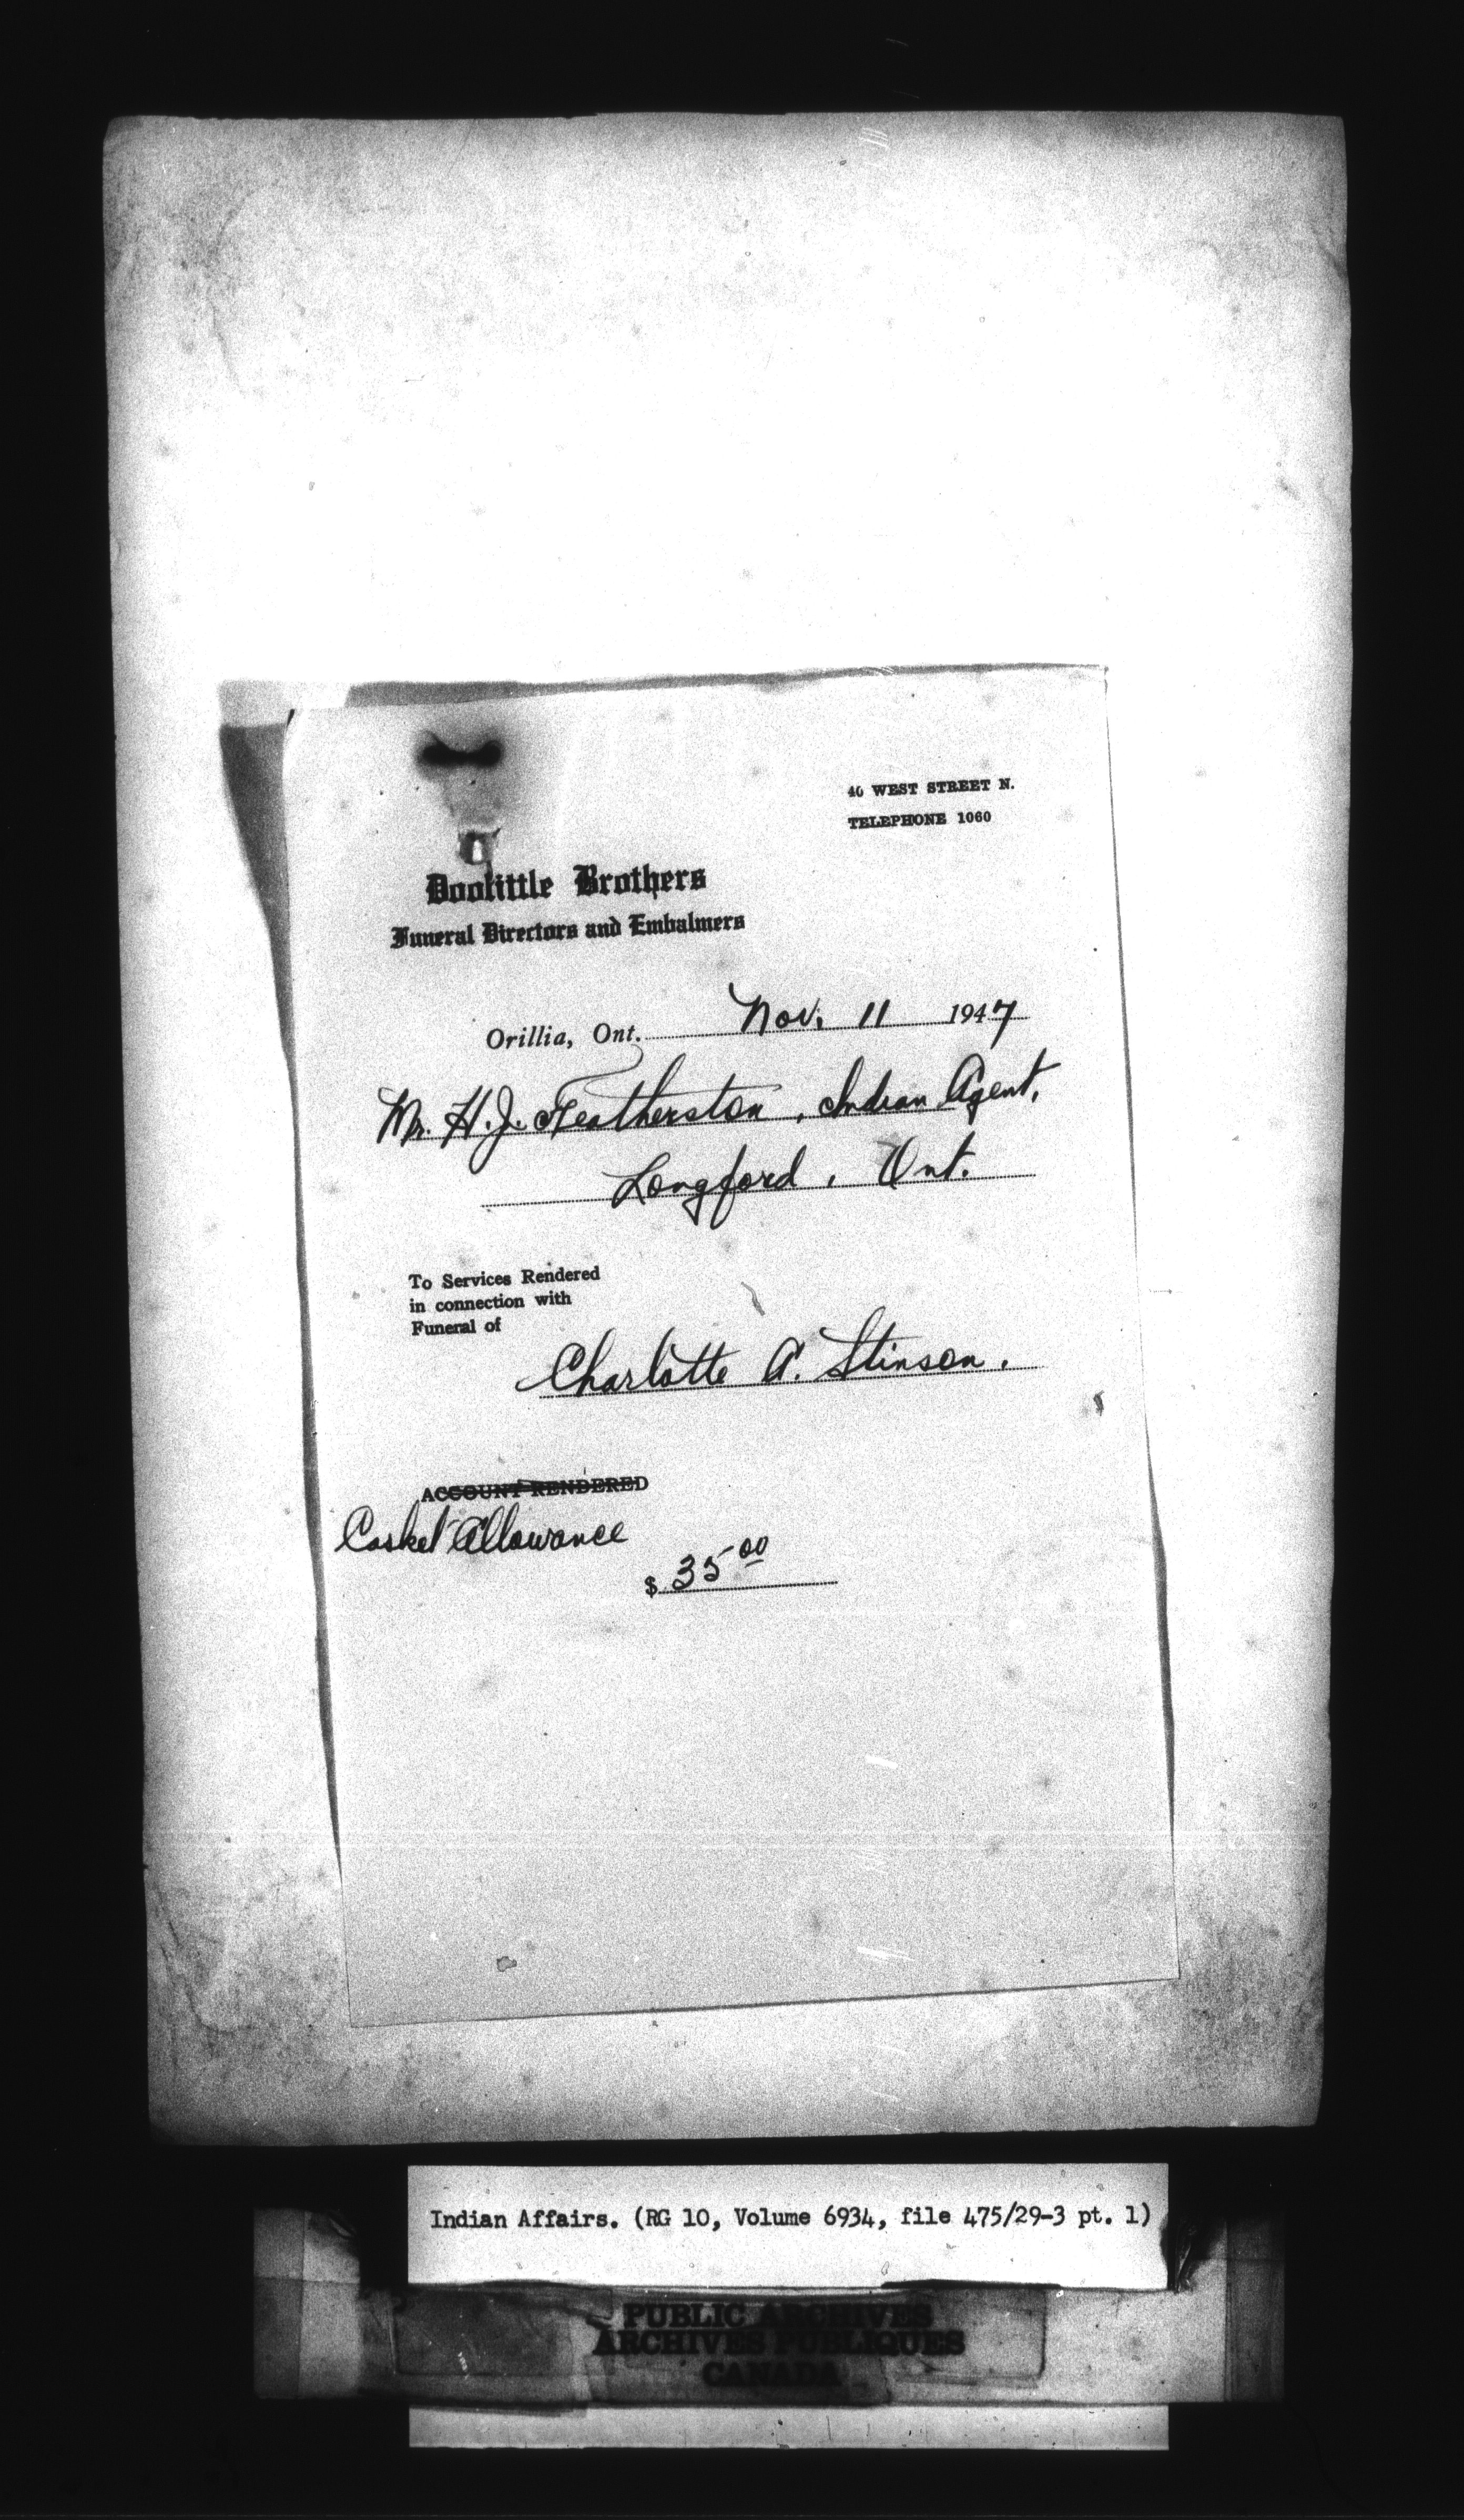 40 WEST STREET N.
TELEPHONE 1060
Doolittle Brothers
Funeral Directors and Embalmers
Orillia, Ont. Nov. 11 1947
Mr. H. J. Featherston, Indian Agent,
Longford, Ont.
To Services Rendered
in connection with
Funeral of
Charlotte A. Stinson.
ACCOUNT RENDERED
Casket Allowance
$ 35 00
Indian Affairs. (RG 10, Volume 6934, file 475/29-3 pt. 1)
PUBLIC ARCHIVES
ARCHIVES PUBLIQUES
CANADA